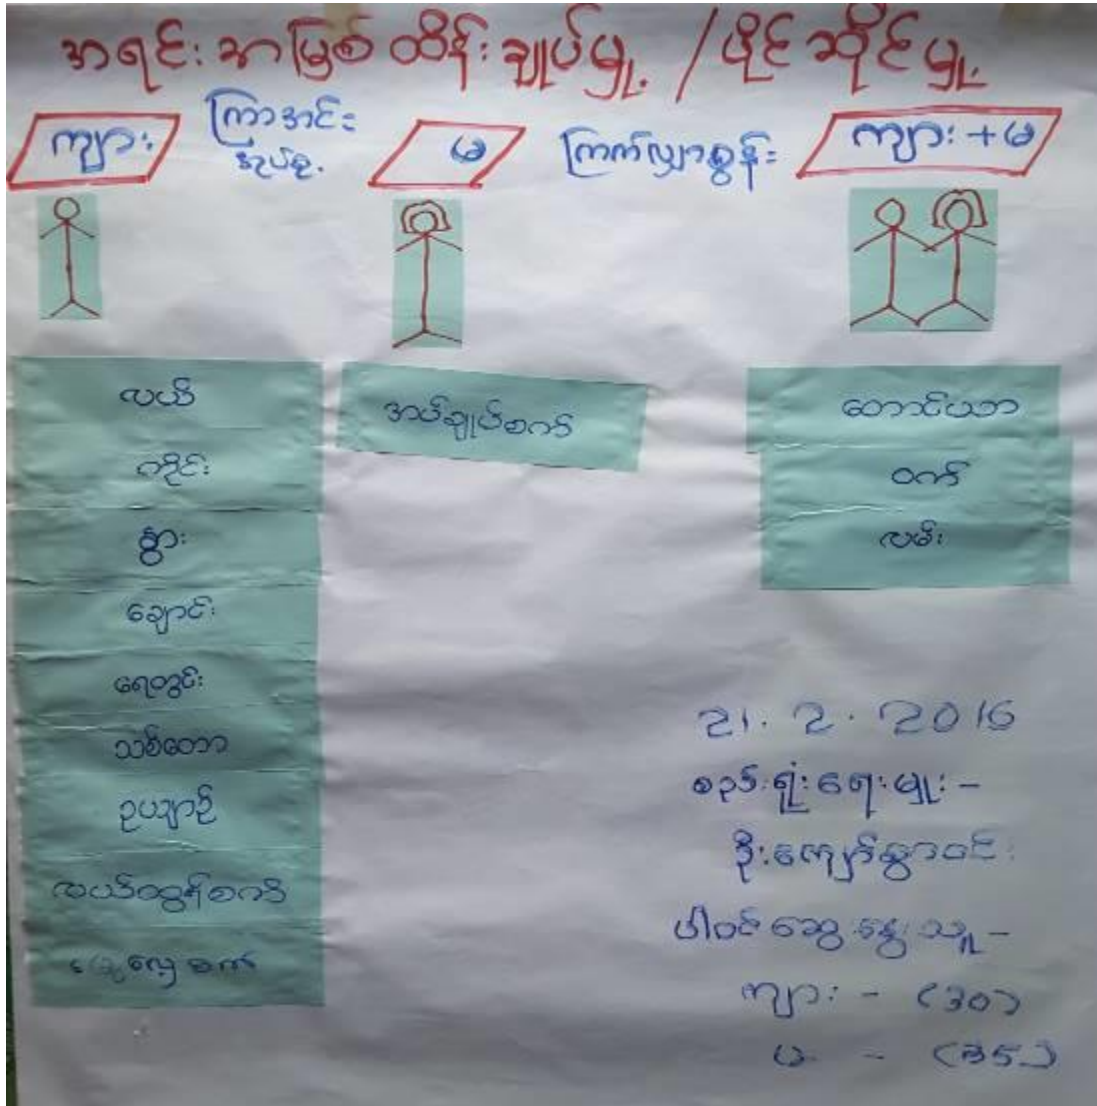 အရင်းအမြစ် ထိန်းချုပ်မှု / ပိုင်ဆိုင်မှု
ကျား
ကြာအင်း
အုပ်စု
မ
ကြက်လျှာစွန်း
ကျား + မ
လယ်
ကိုင်း
နွား
ချောင်း
ရေတွင်း
သစ်တော
ဥယျာဉ်
လယ်ထွန်စက်
စက်
အပ်ချုပ်စက်
တောင်ယာ
ဝက်
လမ်း
21. 2. 2016
စည်းရုံးရေးမှုး -
ဦးကျော်စွာဝင်း
ပါဝင်ဆွေးနွေးသူ -
ကျား - (30)
မ - (35)